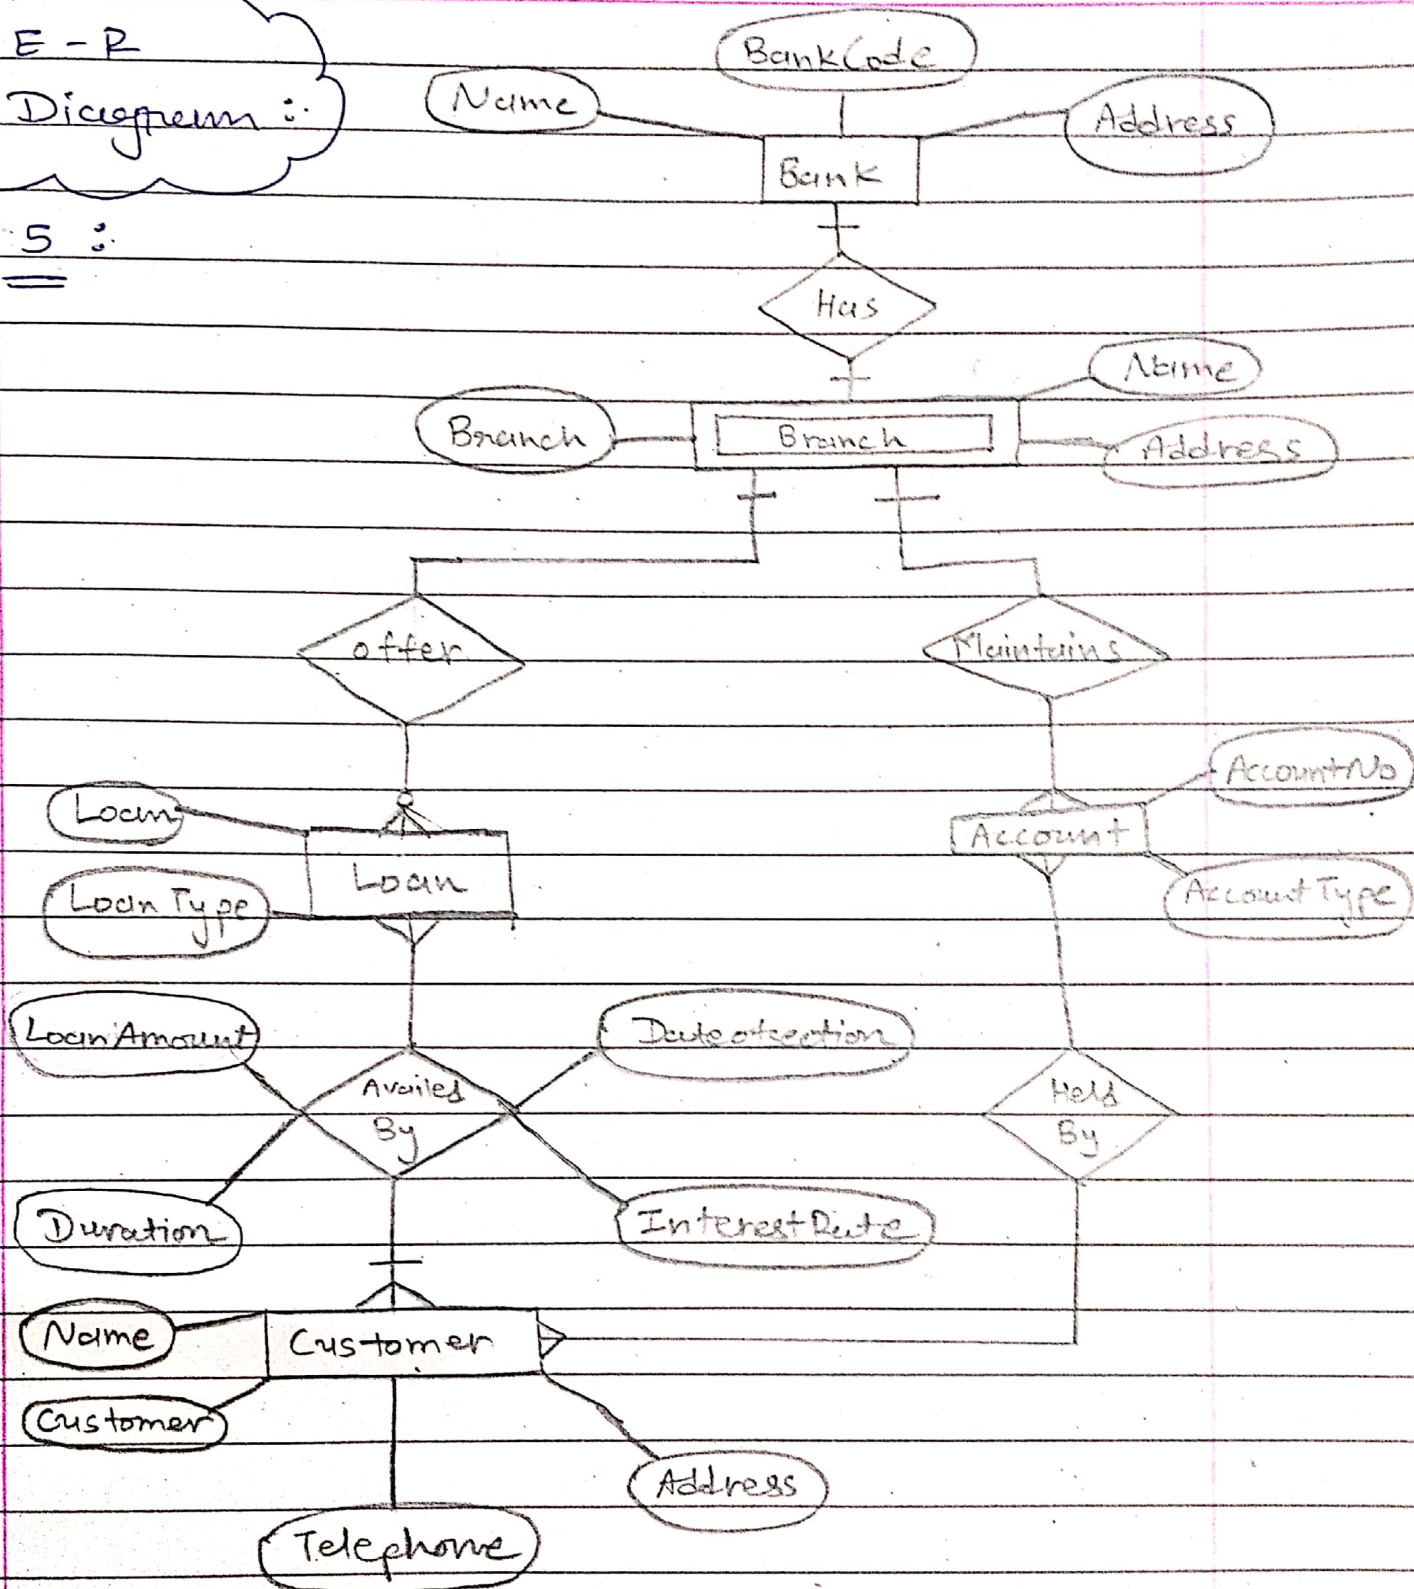 E-R
Diagram :
5 :
BankCode
Name
Address
Bank
Has
Name
Branch
Branch
Address
offer
Maintains
AccountNo
Loan
Account
Loan
AccountType
LoanType
LoanAmount
Availed
By
Held
By
Duration
InterestRate
Name
Customer
Customer
Address
Telephone